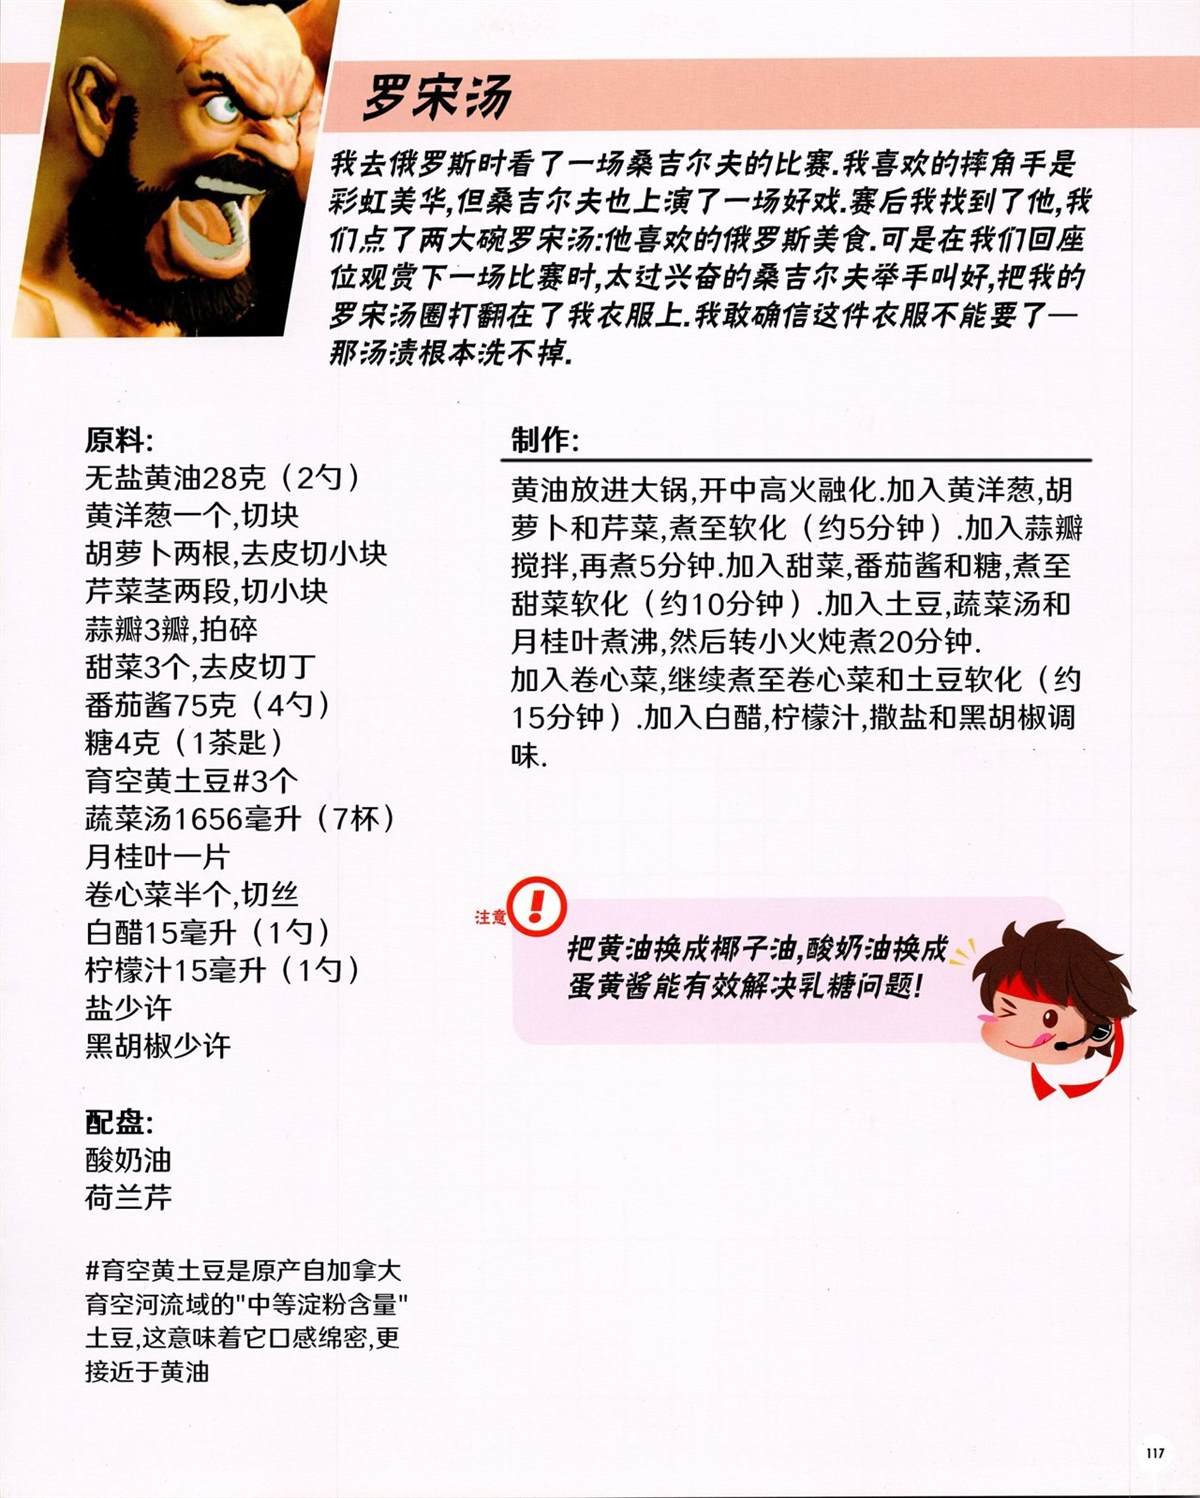 罗宋汤
我去俄罗斯时看了一场桑吉尔夫的比赛.我喜欢的摔角手是
彩虹美华,但桑吉尔夫也上演了一场好戏.赛后我找到了他,我
们点了两大碗罗宋汤:他喜欢的俄罗斯美食.可是在我们回座
位观赏下一场比赛时,太过兴奋的桑吉尔夫举手叫好,把我的
罗宋汤圈打翻在了我衣服上.我敢确信这件衣服不能要了—
那汤渍根本洗不掉.
原料:
无盐黄油28克（2勺）
黄洋葱一个,切块
胡萝卜两根,去皮切小块
芹菜茎两段,切小块
蒜瓣3瓣,拍碎
甜菜3个,去皮切丁
番茄酱75克（4勺）
糖4克（1茶匙）
育空黄土豆#3个
蔬菜汤1656毫升（7杯）
月桂叶一片
卷心菜半个,切丝
白醋15毫升（1勺）
柠檬汁15毫升（1勺）
盐少许
黑胡椒少许
配盘:
酸奶油
荷兰芹
#育空黄土豆是原产自加拿大
育空河流域的"中等淀粉含量"
土豆,这意味着它口感绵密,更
接近于黄油
制作:
黄油放进大锅,开中高火融化.加入黄洋葱,胡
萝卜和芹菜,煮至软化（约5分钟）.加入蒜瓣
搅拌,再煮5分钟.加入甜菜,番茄酱和糖,煮至
甜菜软化（约10分钟）.加入土豆,蔬菜汤和
月桂叶煮沸,然后转小火炖煮20分钟.
加入卷心菜,继续煮至卷心菜和土豆软化（约
15分钟）.加入白醋,柠檬汁,撒盐和黑胡椒调
味.
注意
把黄油换成椰子油,酸奶油换成
蛋黄酱能有效解决乳糖问题!
117